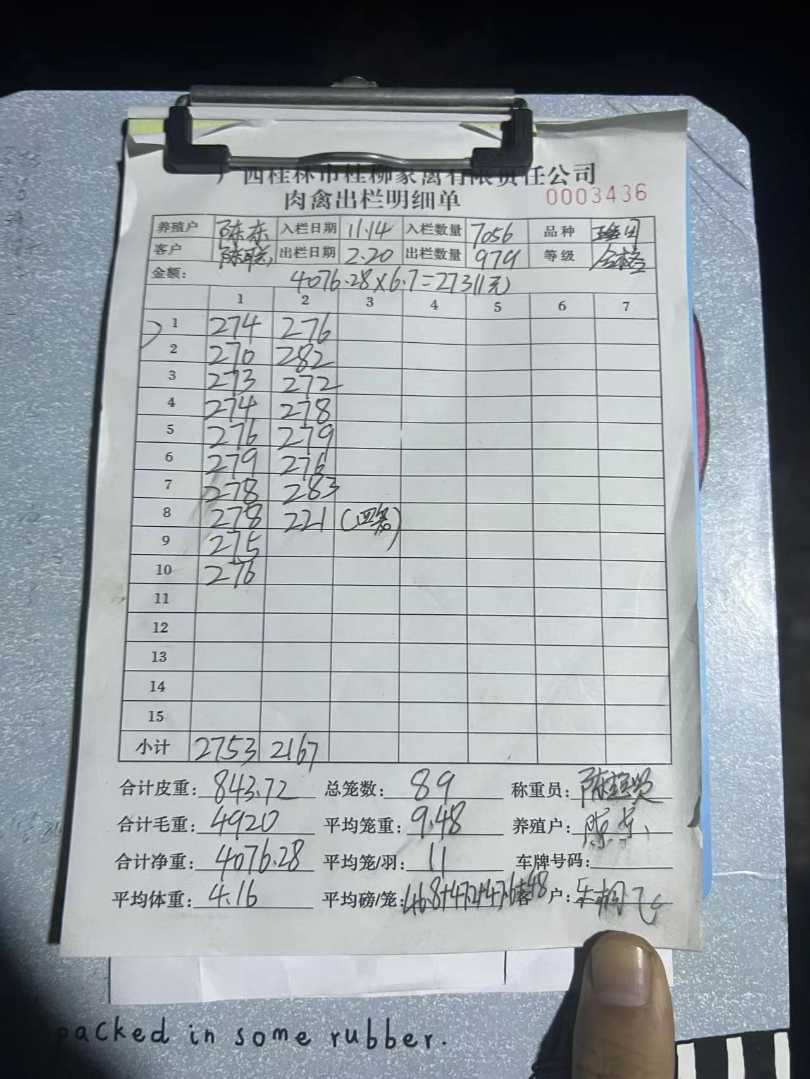 广西桂林市桂柳家禽有限责任公司
肉禽出栏明细单 0003436
养殖户 陈东 入栏日期 11.14 入栏数量 7056 品种
客户 出栏日期 2.20 出栏数量 979 等级
金额: 4076.28×6.7=27311元
1 2 3 4 5 6 7
1 274 276
2 270 282
3 273 272
4 274 278
5 276 279
6 279 276
7 278 283
8 278 221 (四笼)
9 275
10 276
11
12
13
14
15
小计 2753 2167
合计皮重: 843.72 总笼数: 89 称重员:
合计毛重: 4920 平均笼重: 9.48 养殖户: 陈东
合计净重: 4076.28 平均笼/羽: 11 车牌号码:
平均体重: 4.16 平均磅/笼: 46.8+47.2+47.6+48 客户:
packed in some rubber.